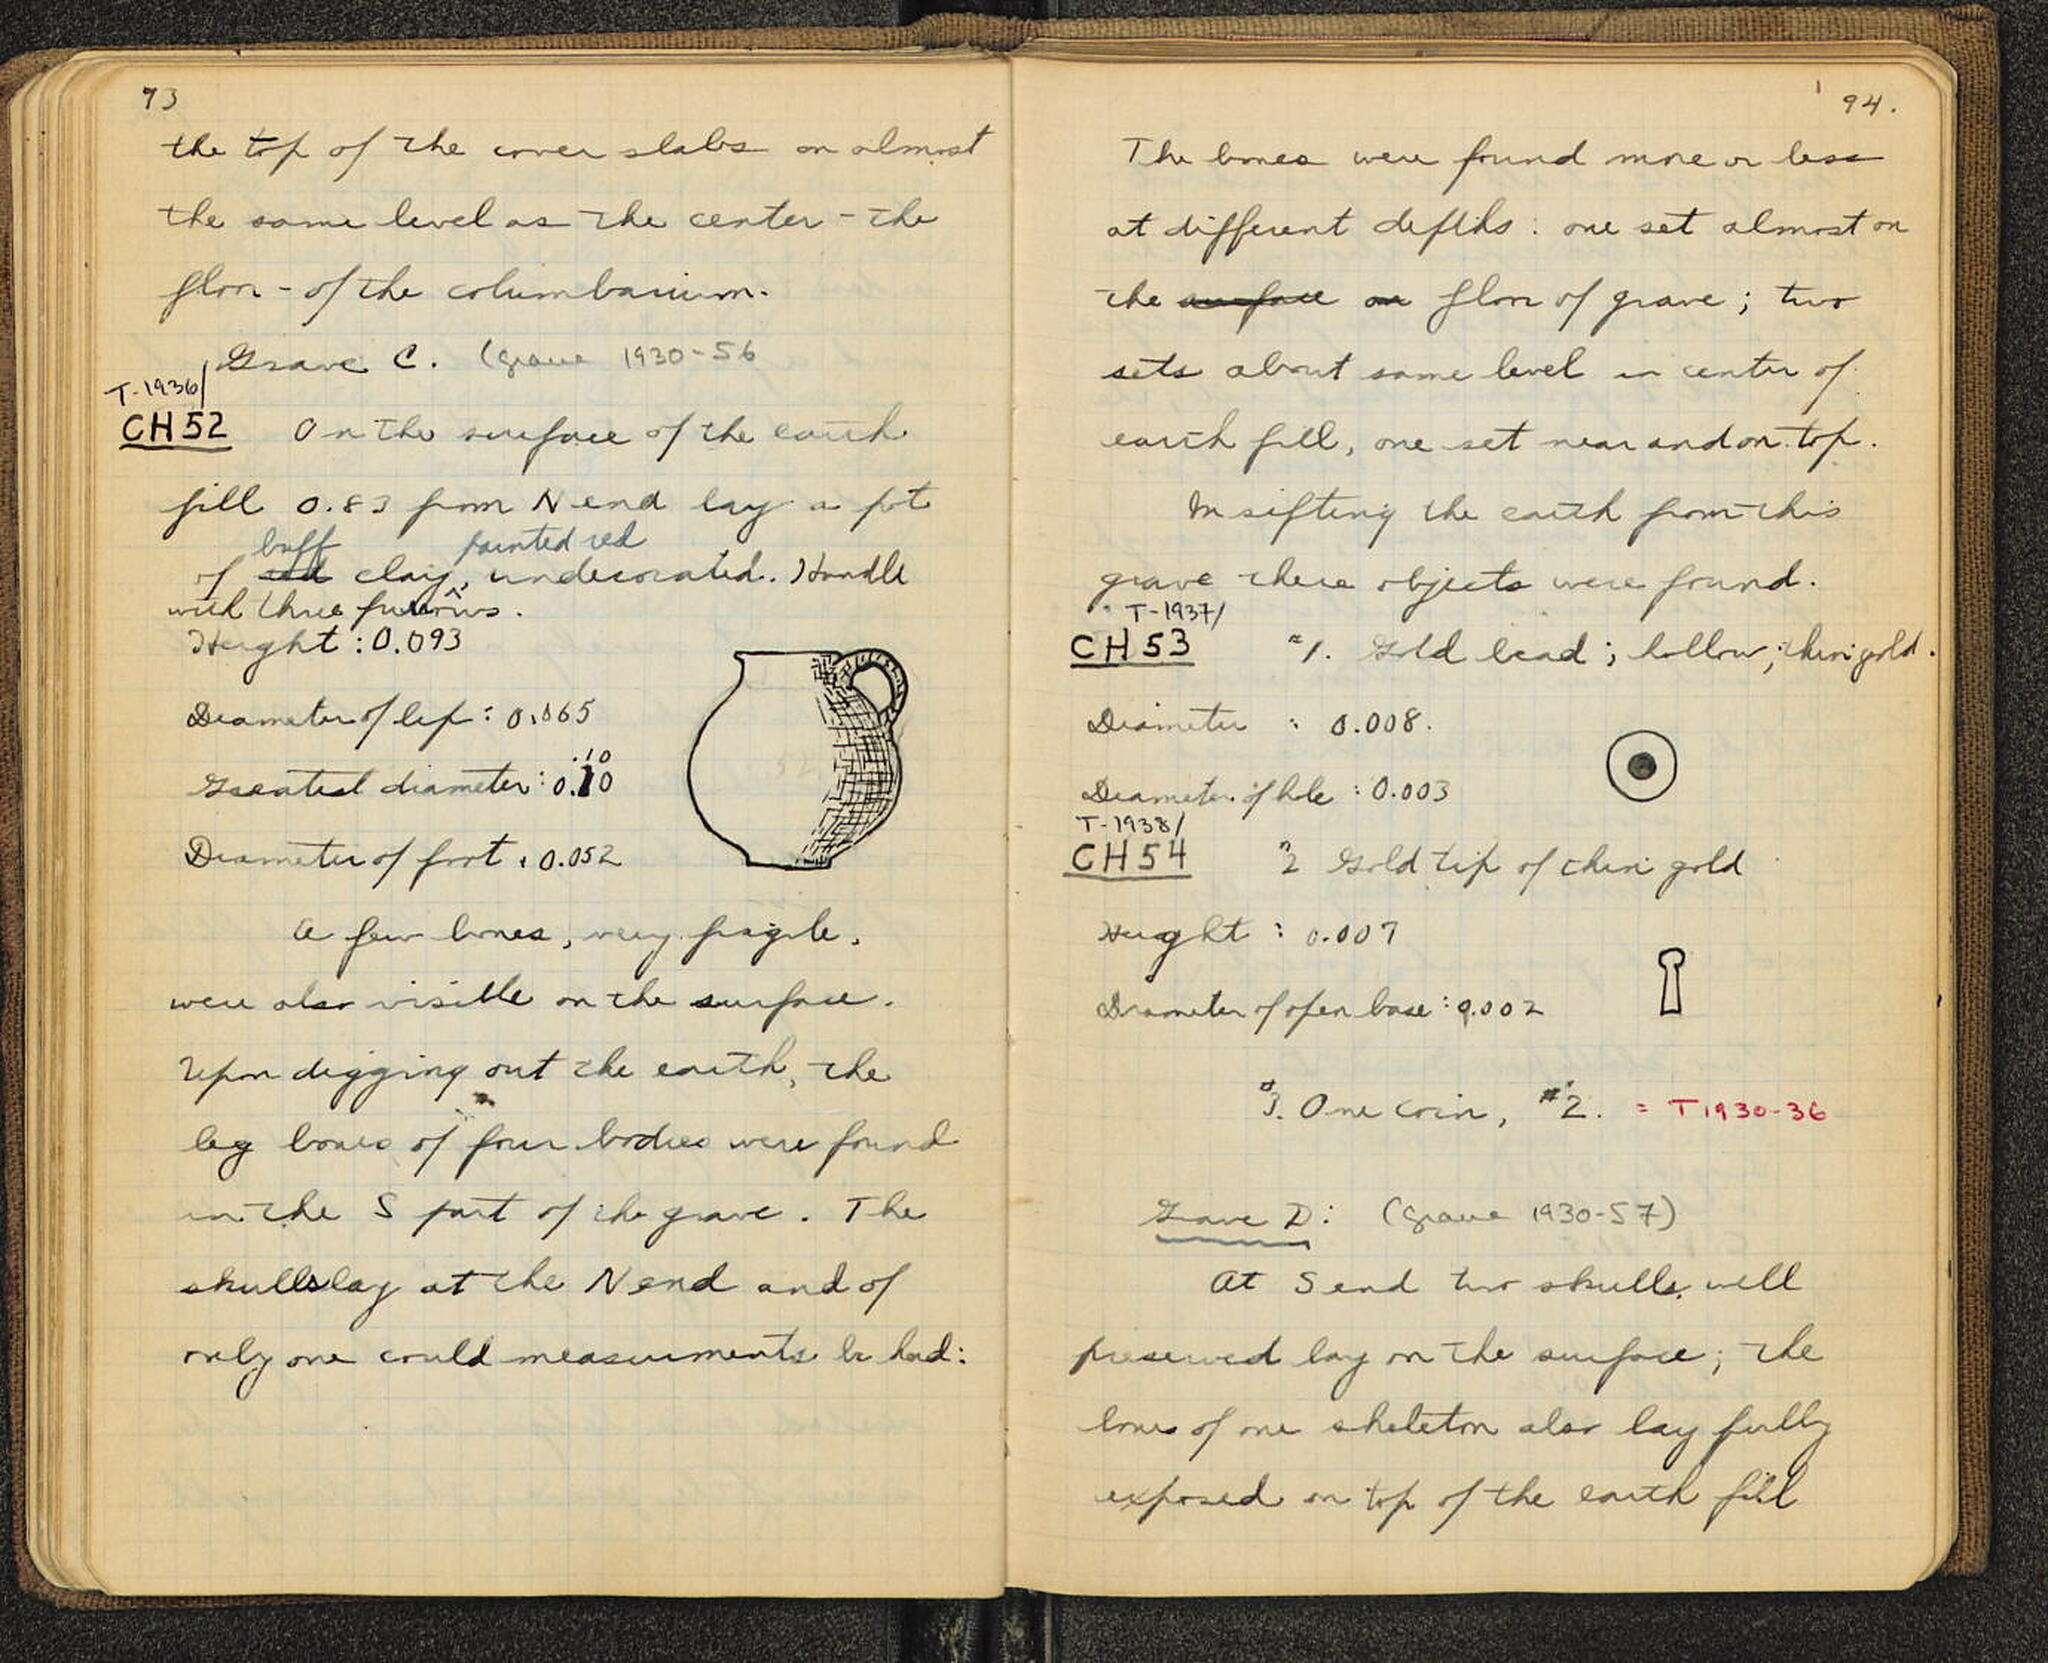 93
the top of the cover slabs on almost
the same level as the center - the
floor - of the columbarium.
Grave C. (grave 1930-56
T-1936/
CH52 On the surface of the earth
fill 0.83 from N end lay a pot
buff painted red
of red clay, undecorated. Handle
with three furrows.
Height : 0.093
Diameter of lip : 0.065
.10
Greatest diameter : 0.10
Diameter of foot : 0.052
A few bones, very fragile,
were also visible on the surface.
Upon digging out the earth, the
leg bones of four bodies were found
in the S part of the grave. The
skulls lay at the N end and of
only one could measurments be had:
94.
The bones were found more or less
at different depths : one set almost on
the surface on floor of grave ; two
sets about same level in center of
earth fill, one set near and on top.
In sifting the earth from this
grave these objects were found.
T-1937/
CH53 #1. Gold bead ; hollow ; thin gold.
Diameter : 0.008.
Diameter of hole : 0.003
T-1938/
CH54 #2 Gold tip of thin gold
Height : 0.007
Diameter of open base : 0.002
#3. One coin, #2. = T1930-36
Grave D : (grave 1930-57)
At S end two skulls, well
preserved lay on the surface ; the
bones of one skeleton also lay fully
exposed on top of the earth fill